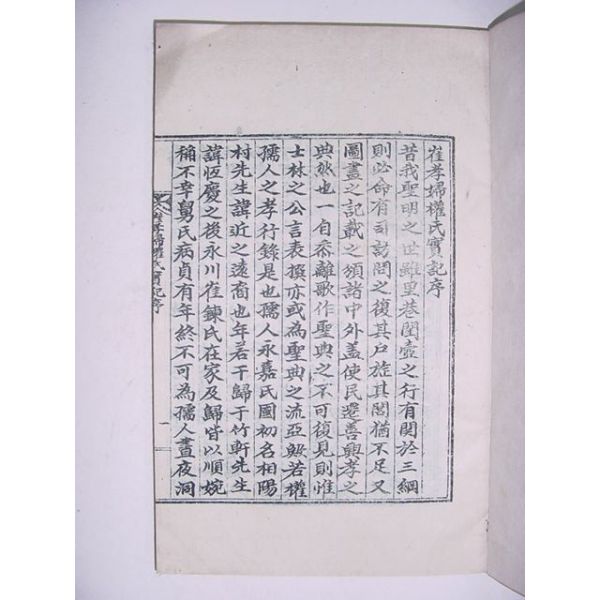 崔孝婦權氏實記序
昔我聖明之世雖里巷閨壼之行有関於三綱
則必命有司訪問之復其戶旌其閭猶不足又
圖畫之記載之頒諸中外盖使民遷善興孝之
典然也一自黍離歌作聖典之不可復見則惟
士林之公言表撰亦或為聖典之流亞般若權
孺人之孝行錄是也孺人永嘉氏國初名相陽
村先生諱近之遠裔也年若干歸于竹軒先生
諱恆慶之後永川崔鍊氏在家及歸皆以順婉
稱不幸舅氏病貞有年終不可為孺人晝夜洞
崔孝婦權氏實記序
一